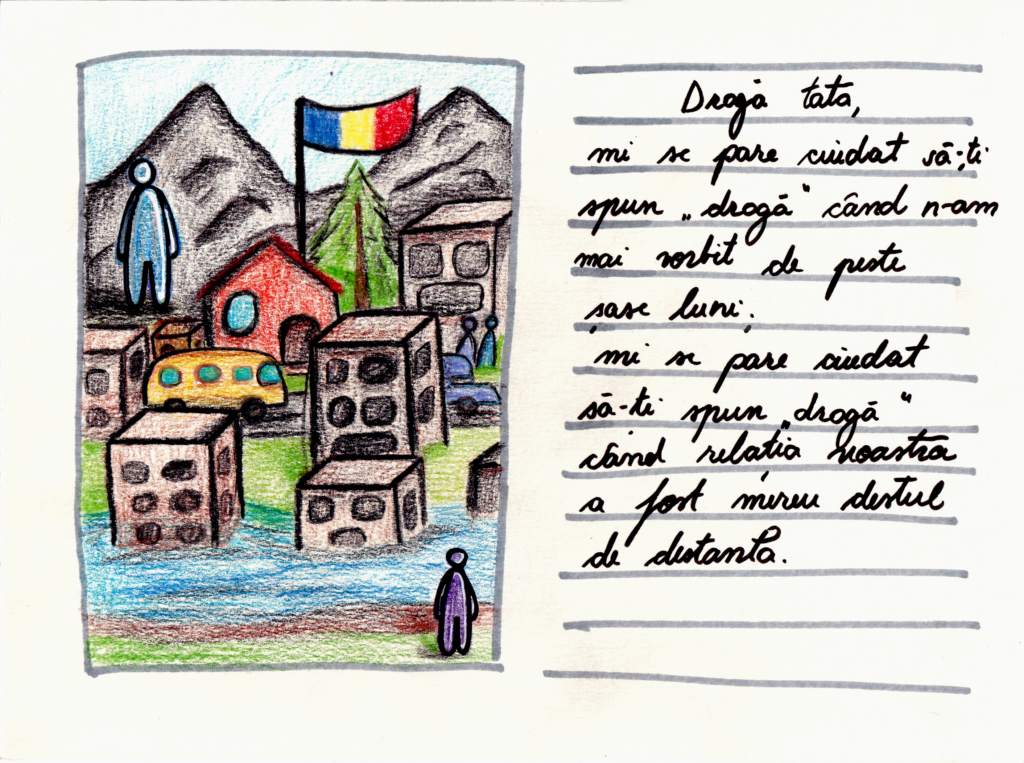 Dragă tata,
mi se pare ciudat să-ți
spun „dragă" când n-am
mai vorbit de peste
șase luni.
mi se pare ciudat
să-ți spun „dragă"
când relația noastra
a fost mereu destul
de distanta.